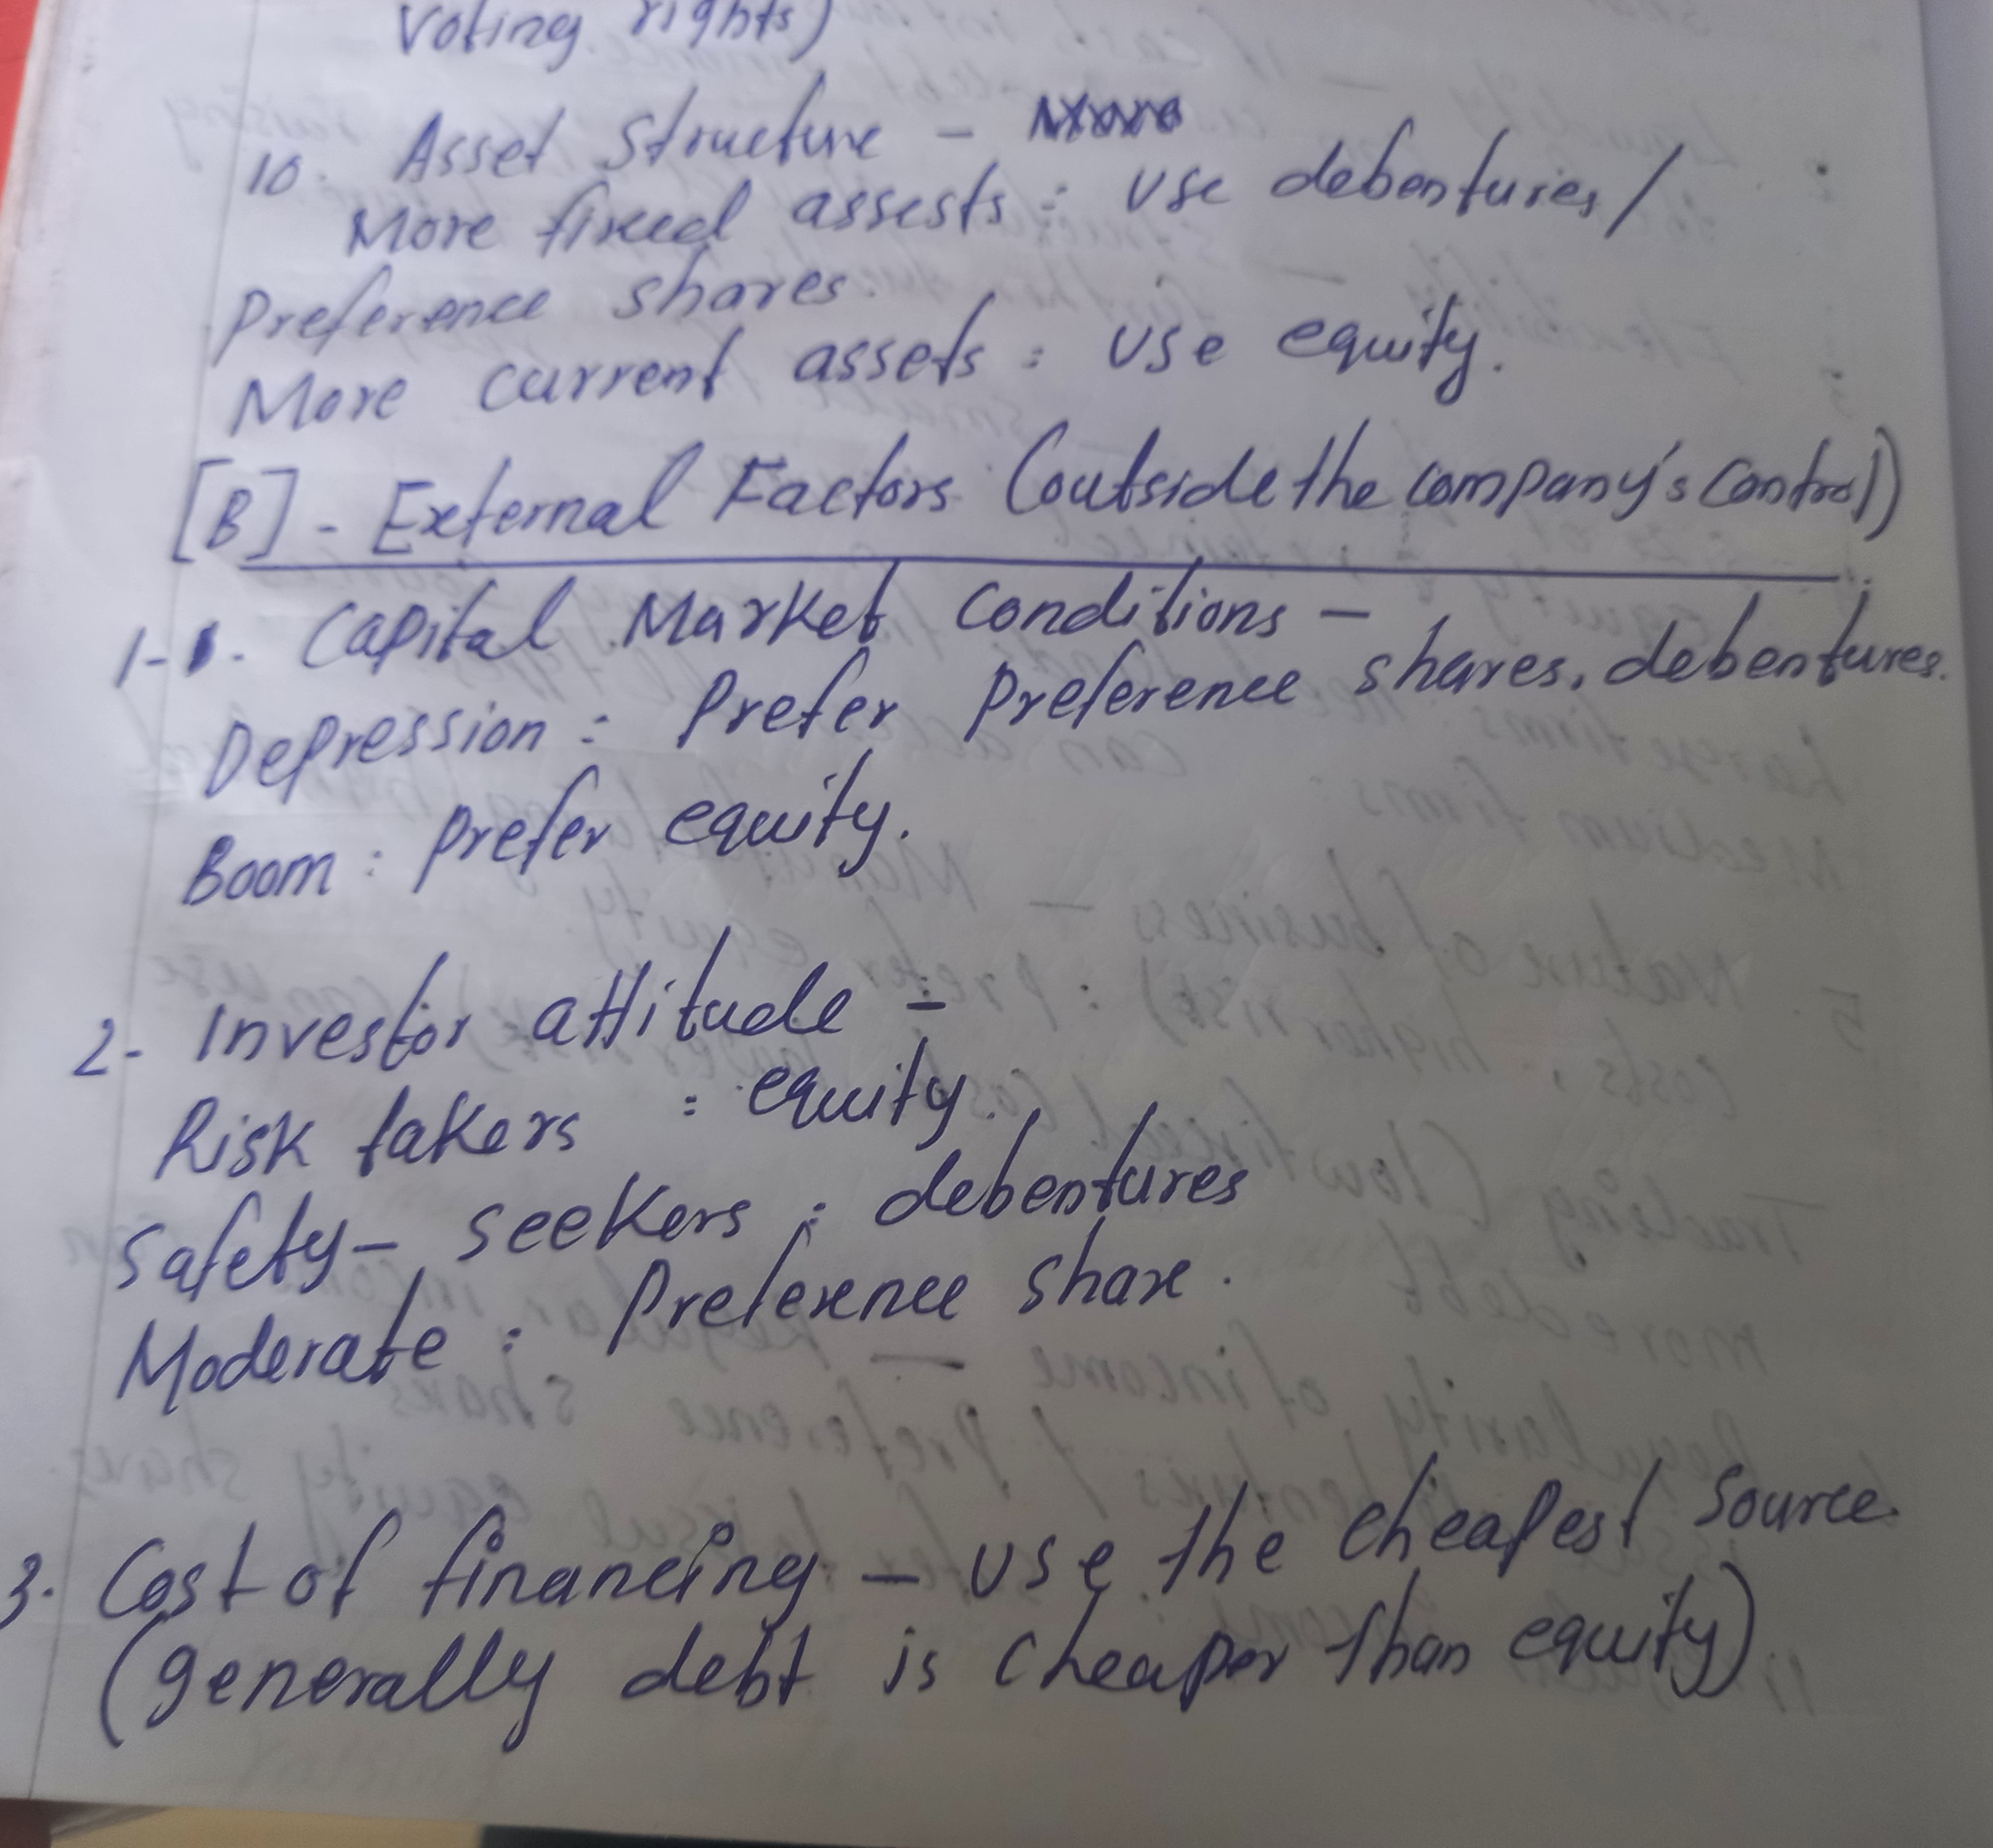 Voting rights)
10. Asset Structure -
More fixed assests : Use debentures/
Preference shares.
More current assets : Use equity.
[B] - External Factors (outside the company's control)
1-. Capital Market Conditions -
Depression : Prefer Preference shares, debentures.
Boom : Prefer equity.
2- Investor attitude -
Risk takers : equity.
Safety - seekers : debentures
Moderate : Preference share.
3. Cost of financing - Use the cheapest source.
(generally debt is cheaper than equity)